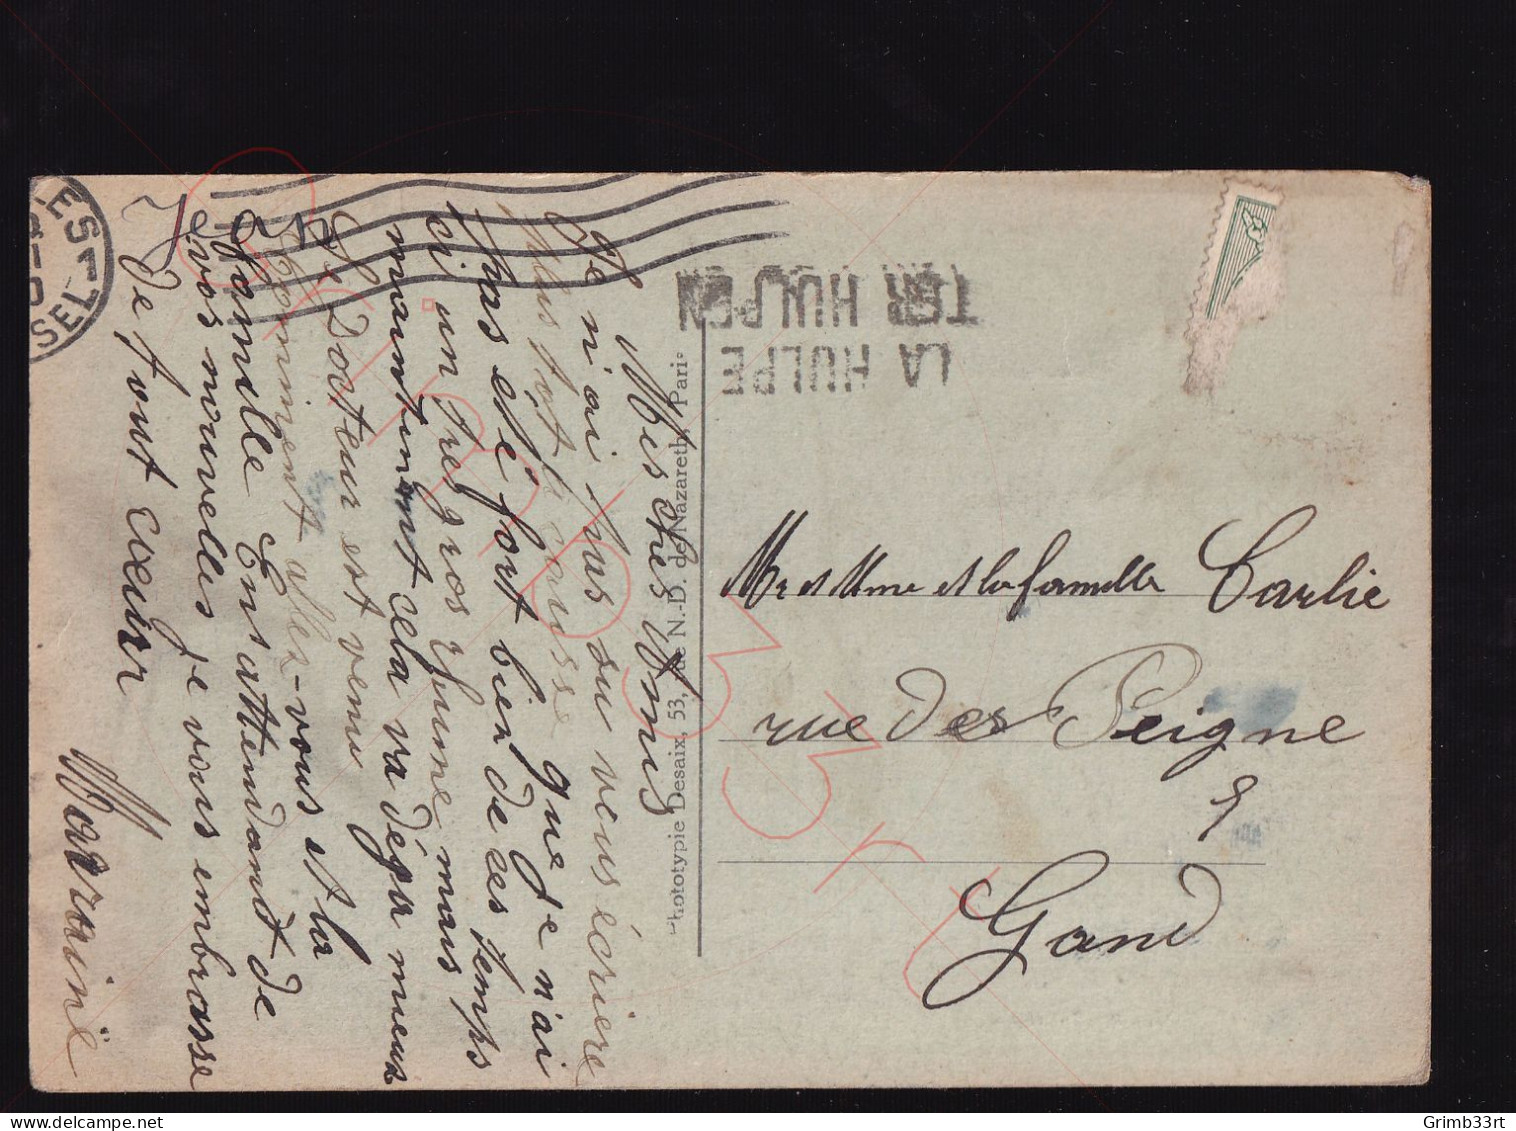 Mes chers Amis
Je n'ai pas su vous écriere
plus tot a cause que je n'ai
pas eté fort bien de ces temps
ci un tres gros rhume mais
maintinent cela va déga mieux
Le Docteur est venu
Comment allez-vous et la
famille En attendant de
vos nouvelles je vous embrasse
de tout cœur
Marraine
Jean
Phototypie Desaix, 53, rue N.-D. de Nazareth, Paris
TER HULPEN
LA HULPE
Mr et Mme et la famille Carlie
rue des Peigne
9
Gand
ES 1
SEL
Grimb33rt
Grimb33rt